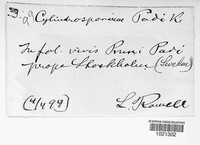 Cylindrosporium Padi K.
In fol. vivis Pruni Padi
prope Stockholm (Suecia)
L. Romell
1021302